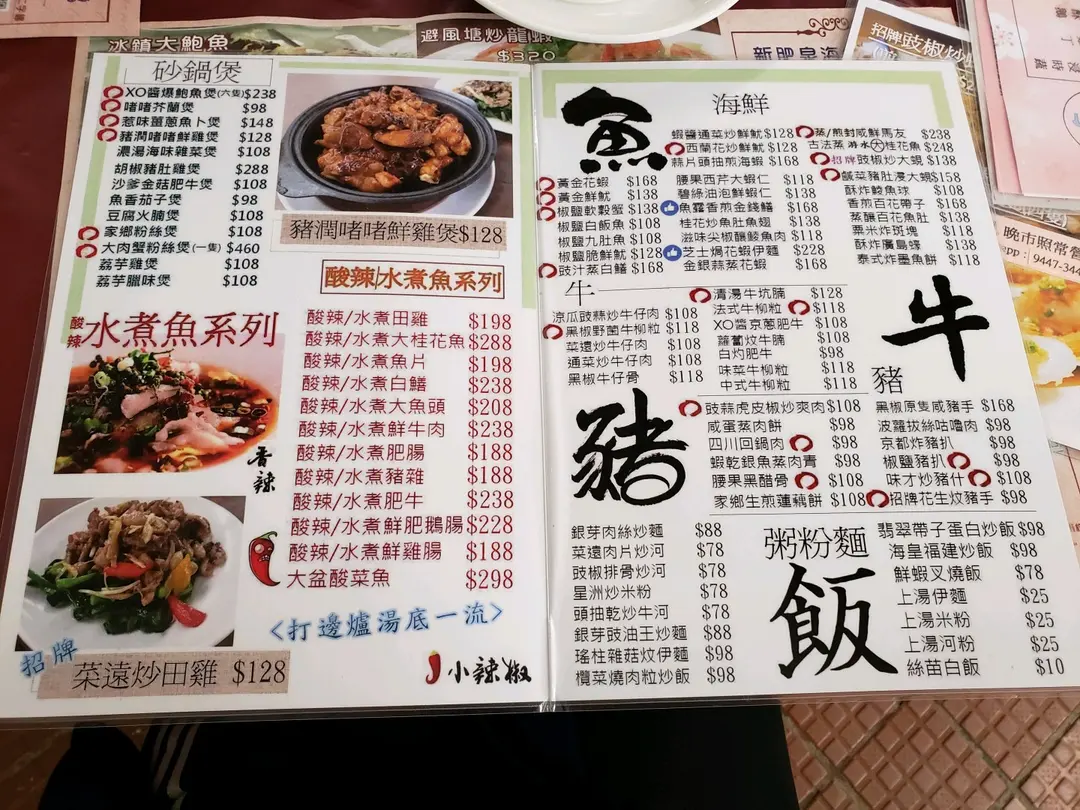 冰鎮大鮑魚
避風塘炒龍蝦
$320
新肥皇海
招牌豉椒炒
砂鍋煲
XO醬爆鮑魚煲(六隻)$238
啫啫芥蘭煲 $98
惹味薑蔥魚卜煲 $148
豬潤啫啫鮮雞煲 $128
濃湯海味雜菜煲 $108
胡椒豬肚雞煲 $288
沙爹金菇肥牛煲 $108
魚香茄子煲 $98
豆腐火腩煲 $108
家鄉粉絲煲 $108
大肉蟹粉絲煲(一隻) $460
荔芋雞煲 $108
荔芋臘味煲 $108
豬潤啫啫鮮雞煲$128
酸辣/水煮魚系列
酸辣水煮魚系列
酸辣/水煮田雞 $198
酸辣/水煮大桂花魚$288
酸辣/水煮魚片 $198
酸辣/水煮白鱔 $238
酸辣/水煮大魚頭 $208
酸辣/水煮鮮牛肉 $238
酸辣/水煮肥腸 $188
酸辣/水煮豬雜 $188
酸辣/水煮肥牛 $238
酸辣/水煮鮮肥鵝腸$228
酸辣/水煮鮮雞腸 $188
大盆酸菜魚 $298
香辣
<打邊爐湯底一流>
招牌
菜遠炒田雞 $128
小辣椒
魚
海鮮
蝦醬通菜炒鮮魷$128
西蘭花炒鮮魷 $128
蒜片頭抽煎海蝦 $168
黃金花蝦 $168
黃金鮮魷 $138
椒鹽軟殼蟹 $138
椒鹽白飯魚 $108
椒鹽九肚魚 $108
椒鹽脆鮮魷 $128
豉汁蒸白鱔 $168
腰果西芹大蝦仁 $118
碧綠油泡鮮蝦仁 $138
魚露香煎金錢鱔 $168
桂花炒魚肚魚翅 $138
滋味尖椒釀鯪魚肉 $118
芝士焗花蝦伊麵 $228
金銀蒜蒸花蝦 $168
蒸/煎封咸鮮馬友 $238
古法蒸游水大桂花魚 $248
招牌豉椒炒大蜆 $138
鹹菜豬肚浸大蜆$158
酥炸鯪魚球 $108
香煎百花帶子 $168
蒸釀百花魚肚 $138
粟米炸斑塊 $118
酥炸廣島蠔 $138
泰式炸墨魚餅 $118
牛
涼瓜豉蒜炒牛仔肉 $108
黑椒野菌牛柳粒 $118
菜遠炒牛仔肉 $108
通菜炒牛仔肉 $108
黑椒牛仔骨 $118
清湯牛坑腩 $128
法式牛柳粒 $118
XO醬京蔥肥牛 $108
蘿蔔炆牛腩 $108
白灼肥牛 $98
味菜牛柳粒 $118
中式牛柳粒 $118
牛
豬
豬
豉蒜虎皮椒炒爽肉$108
咸蛋蒸肉餅 $98
四川回鍋肉 $98
蝦乾銀魚蒸肉青 $98
腰果黑醋骨 $108
家鄉生煎蓮藕餅 $108
黑椒原隻咸豬手 $168
波蘿拔絲咕嚕肉 $98
京都炸豬扒 $98
椒鹽豬扒 $98
味才炒豬什 $108
招牌花生炆豬手 $98
銀芽肉絲炒麵 $88
菜遠肉片炒河 $78
豉椒排骨炒河 $78
星洲炒米粉 $78
頭抽乾炒牛河 $78
銀芽豉油王炒麵 $88
瑤柱雜菇炆伊麵 $98
欖菜燒肉粒炒飯 $98
粥粉麵
飯
翡翠帶子蛋白炒飯$98
海皇福建炒飯 $98
鮮蝦叉燒飯 $78
上湯伊麵 $25
上湯米粉 $25
上湯河粉 $25
絲苗白飯 $10
晚市照常營